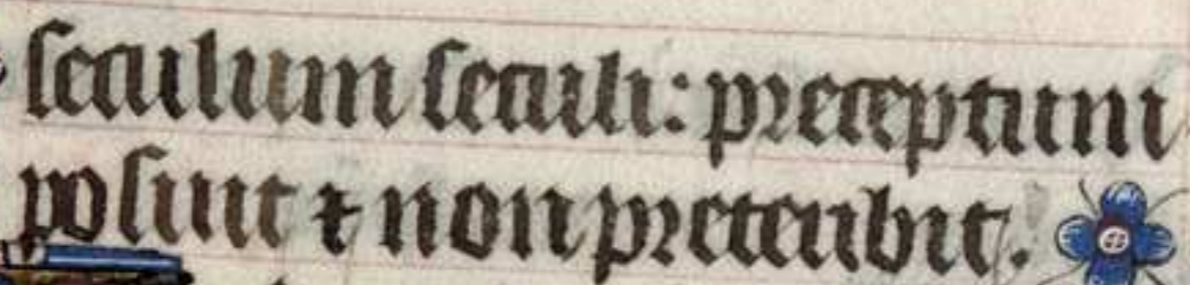 seculum seculi: preceptum
posuit ⁊ non preteribit.